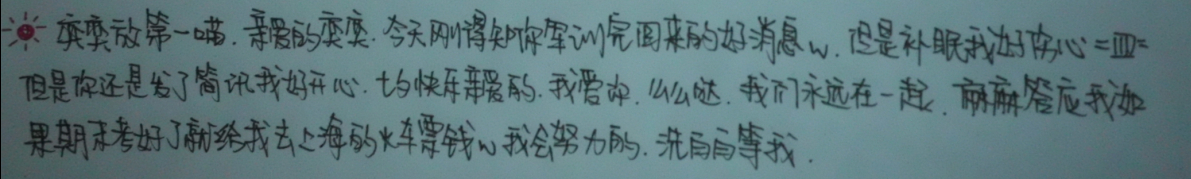 奕奕放第一喵.亲爱的奕奕.今天刚得知你军训完回来的好消息w.但是补眠我好伤心=皿=
但是你还是发了简讯我好开心.七夕快乐亲爱的.我爱你.么么哒.我们永远在一起.麻麻答应我如
果期末考好了就给我去上海的火车票钱w我会努力的.洗白白等我.